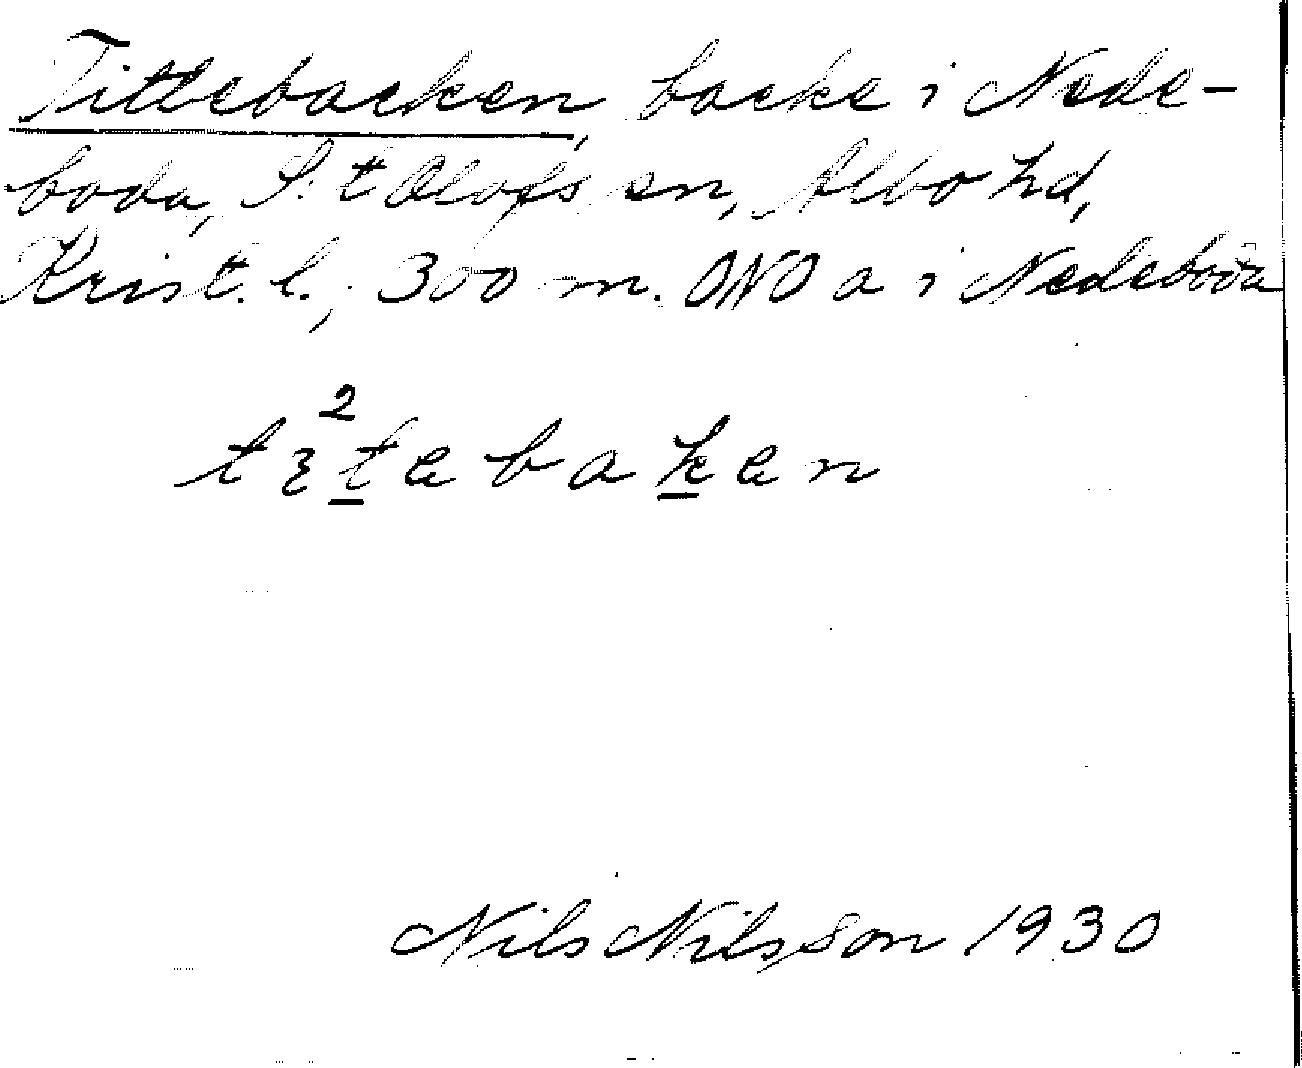 Tittebacken, backe i Nede-
boda, S:t Olofs sn, Albo hd,
Krist. l.; 300 m. ONO a i Nedeboda
tɛ²t̲ebak̲en
Nils Nilsson 1930